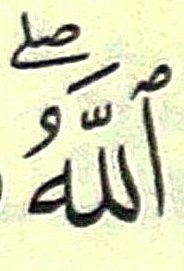 ٱللَّهُۖ